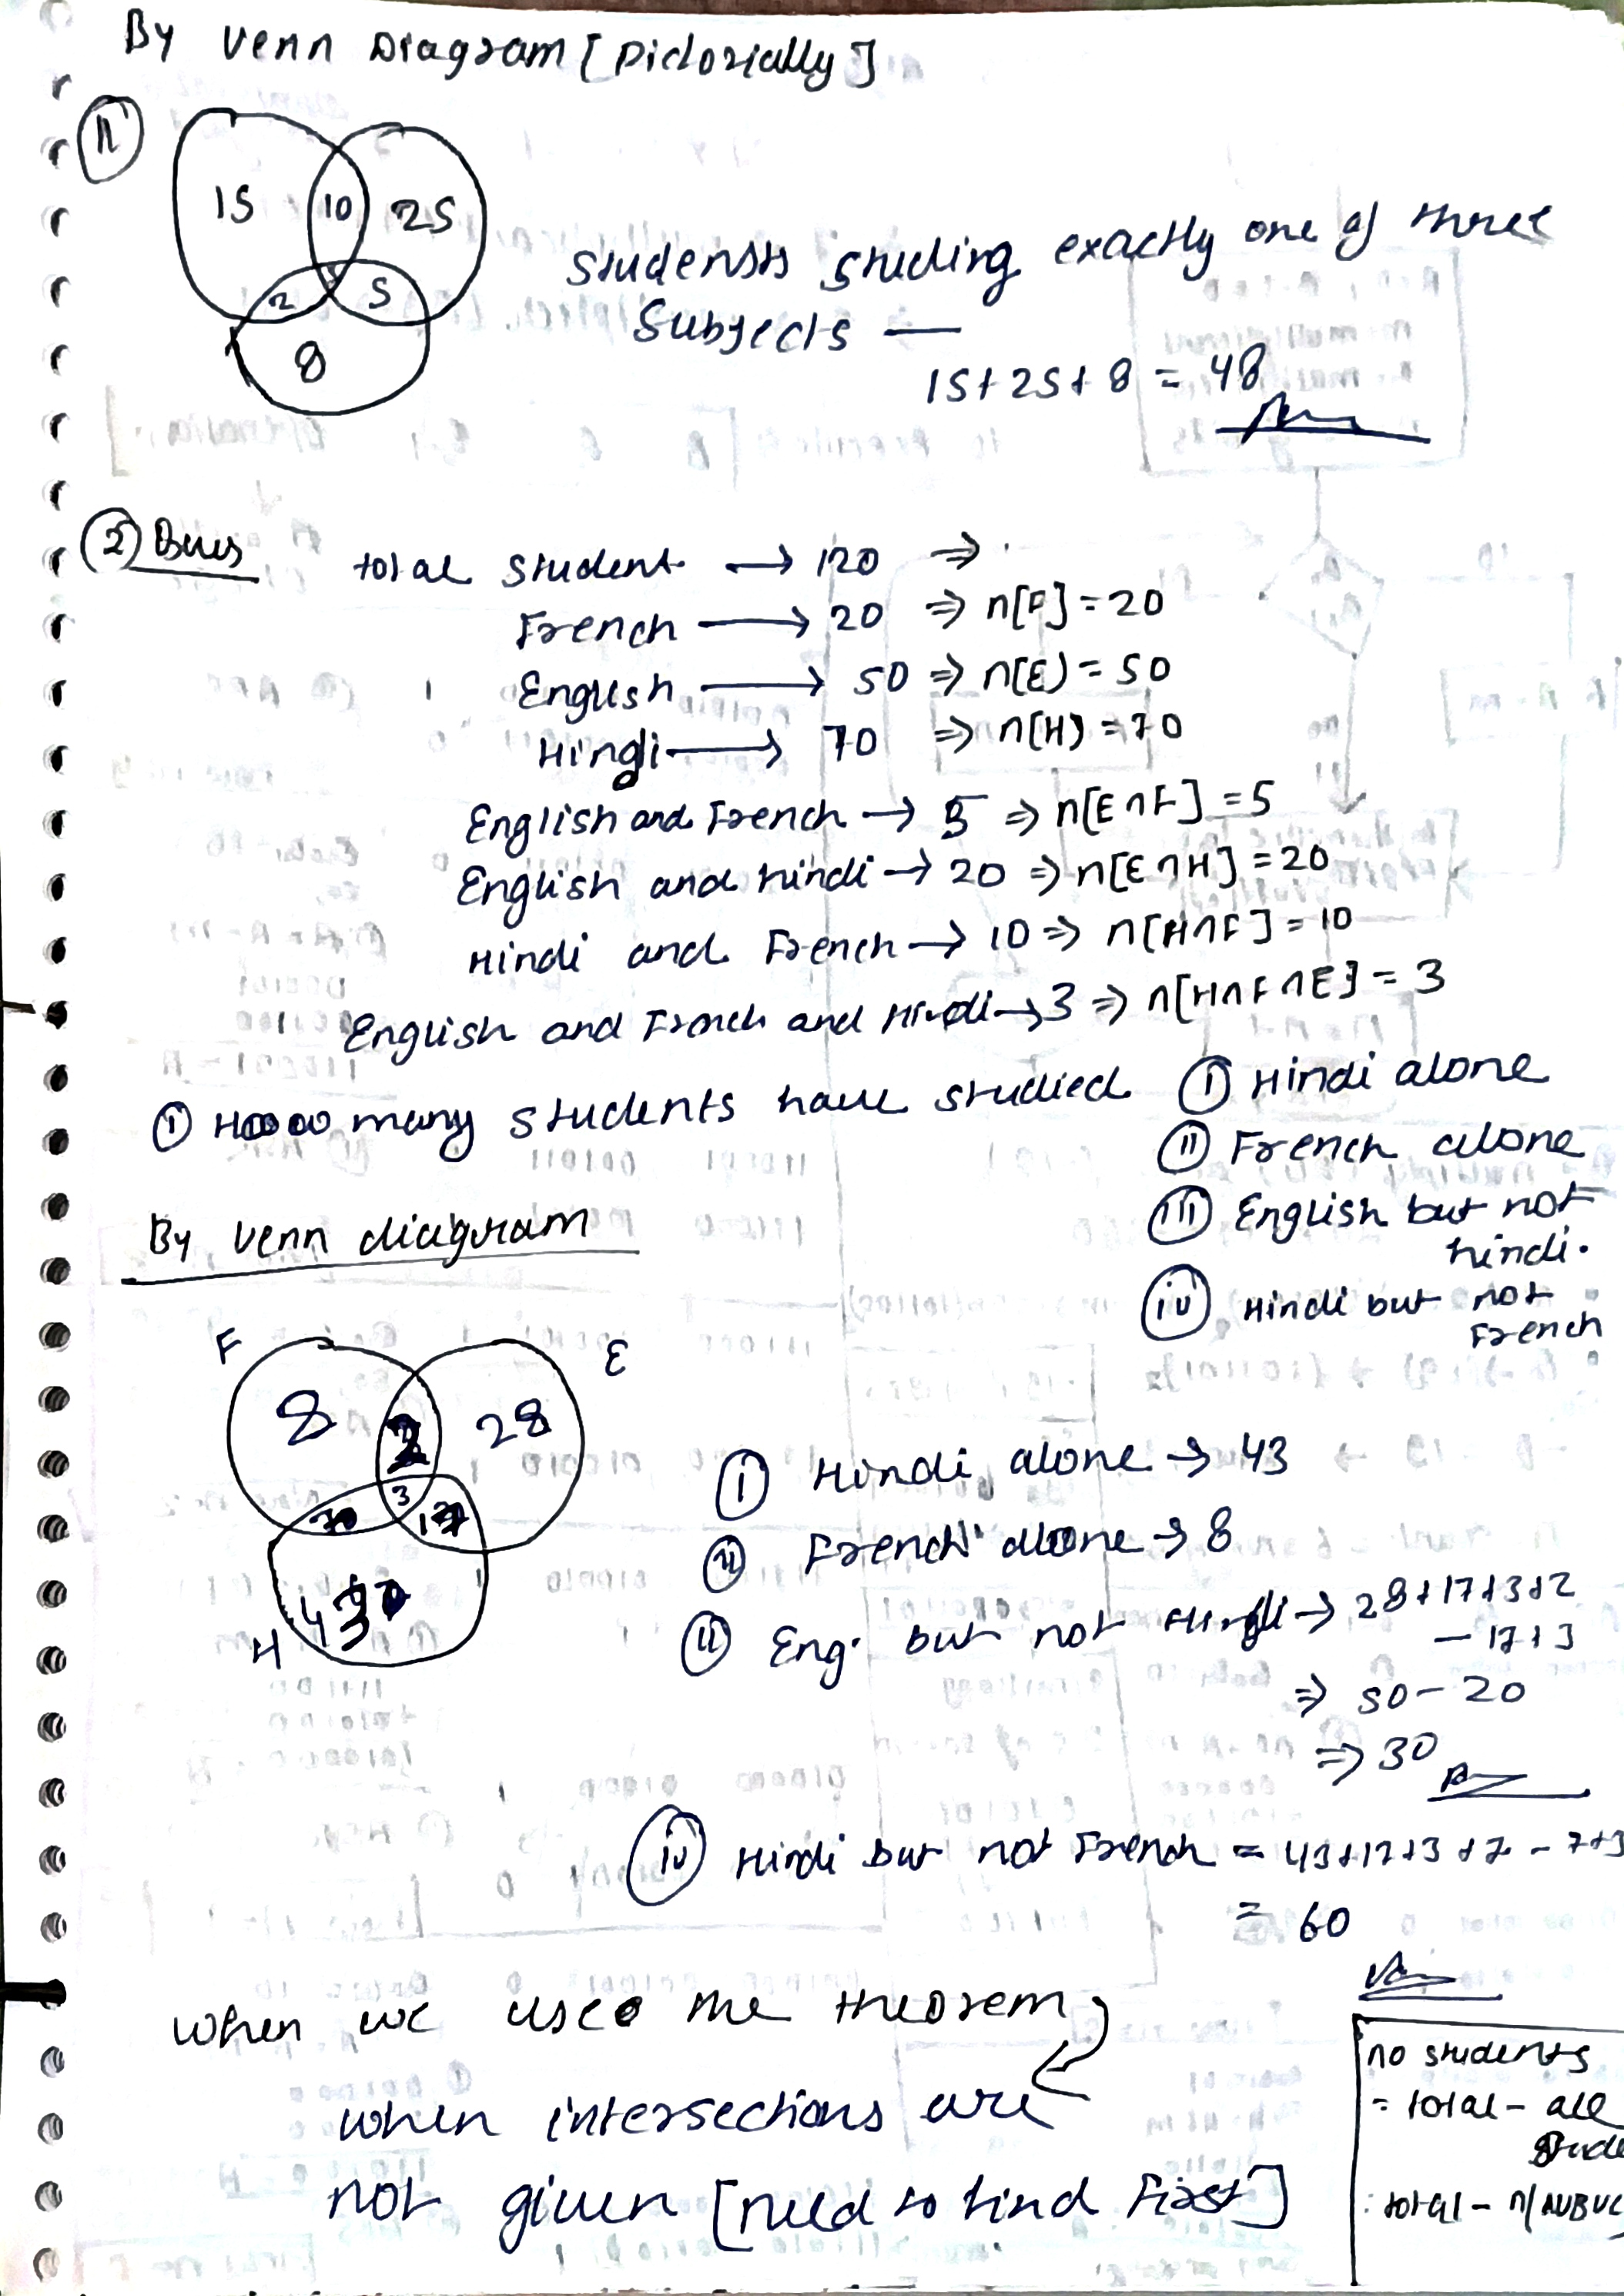 By Venn Diagram [Pictorially]
1
15 10 25
2 5
8
Studensts Studing exactly one of three
Subjects —
15+25+8 = 48
2
total student → 120 ⇒
French → 20 ⇒ n[F]=20
English → 50 ⇒ n[E) = 50
Hindi → 70 ⇒ n(H) = 70
English and French → 5 ⇒ n[E∩F] = 5
English and hindi → 20 ⇒ n[E∩H] = 20
Hindi and French → 10 ⇒ n[H∩F] = 10
English and French and Hindi → 3 ⇒ n[H∩F∩E] = 3
① many students have studied ① Hindi alone
② French alone
③ English but not
hindi.
iv Hindi but not
French
By Venn diagram
F E
8 2 28
3
7 17
43
H
① Hindi alone → 43
② French alone → 8
② Eng. but not Hindi → 28+17+3+2
— 17+3
⇒ 50 — 20
⇒ 30
iv Hindi but not French = 43+17+3+7 - 7+3
= 60
when we use the theorem
when intersections are
not given [need to find First]
no students
= total — all
total — n(AUBUC